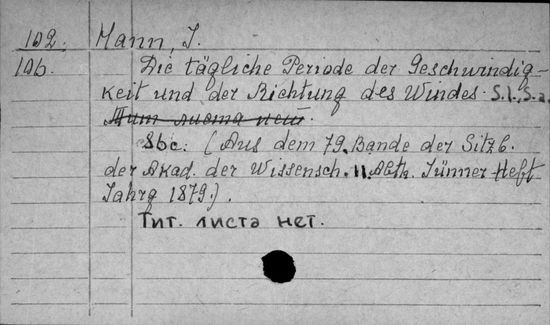 102. Mann, J.
106. Die tägliche Periode der Geschwindig-
keit und der Richtung des Windes. S.l., S.a.
Тит. листа нет.
Sbc. (Aus dem 79. Bande der Sitzb.
der Akad. der Wissensch. II. Abth. Jünner Heft
Jahrg 1879.).
Тит. листа нет.